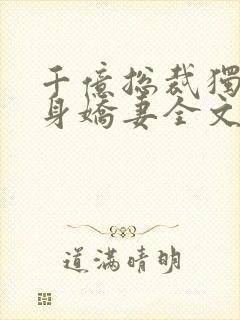 千億總裁獨
身嬌妻全文
道滿晴明